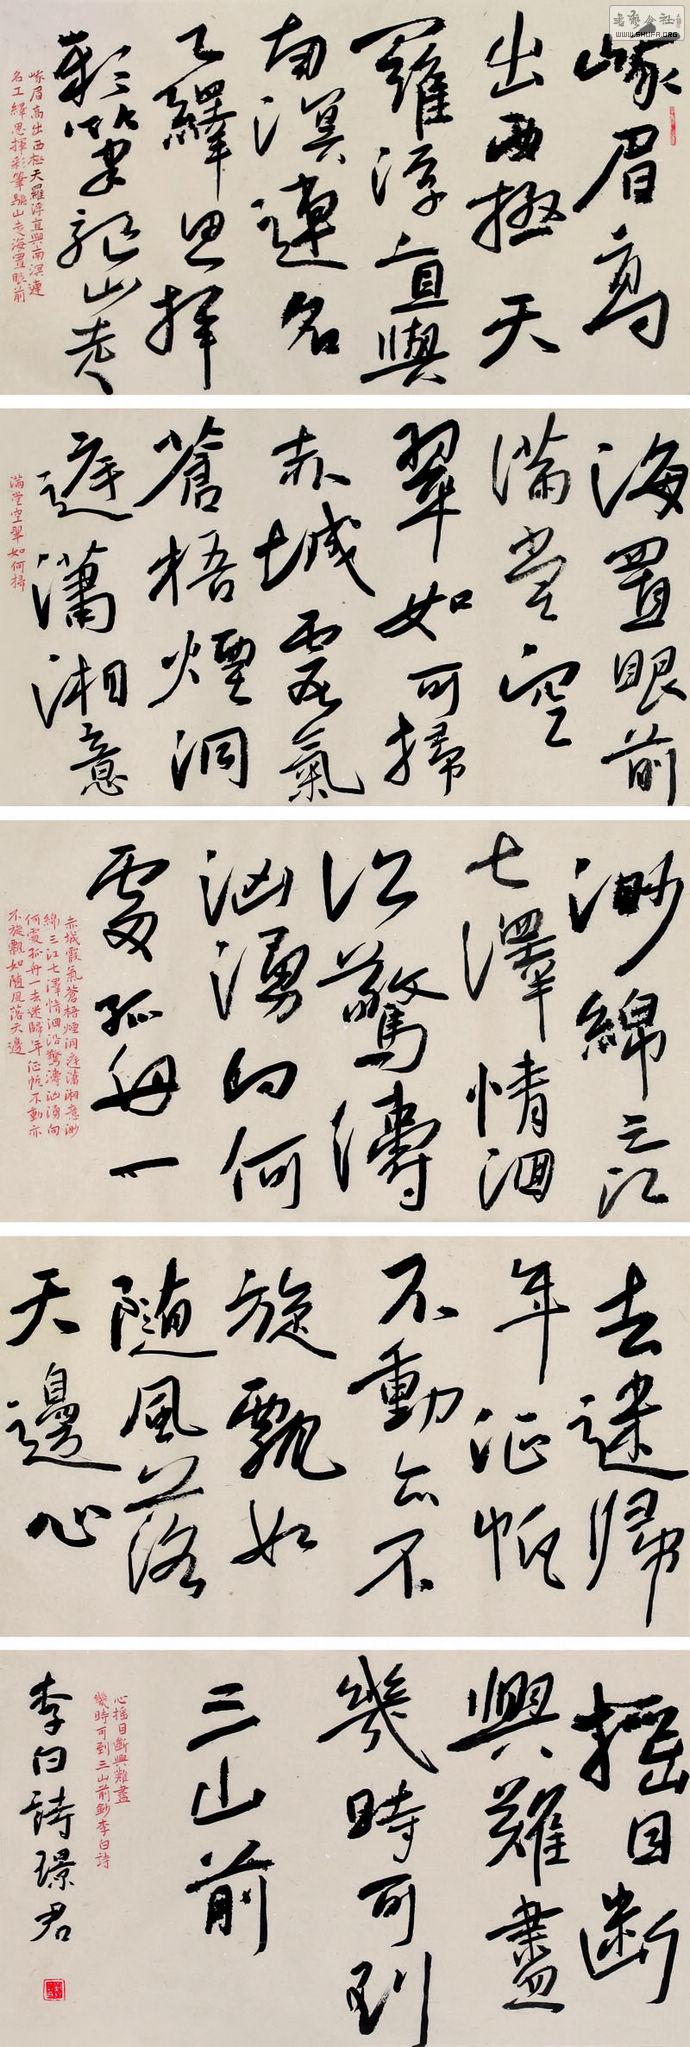 峨眉高
出西極天
羅浮直與
南溟連名
工繹思揮
彩筆驅山走
峨眉高出西極天羅浮直與南溟連
名工繹思揮彩筆驅山走海置眼前
海置眼前
滿堂空
翠如可掃
赤城霞氣
蒼梧煙洞
庭瀟湘意
滿堂空翠如何掃
渺綿三江
七澤情洄
沿驚濤
洶湧向何
處孤舟一
赤城霞氣蒼梧煙洞庭瀟湘意渺
綿三江七澤情洄沿驚濤洶湧向
何處孤舟一去迷歸年征帆不動亦
不旋飄如隨風落天邊
去迷歸
年征帆
不動亦不
旋飄如
隨風落
天邊心
搖目斷
興難盡
幾時可到
三山前
心搖目斷興難盡
幾時可到三山前鈔李白詩
李白詩璟君
書藝公社
WWW.SHUFA.ORG